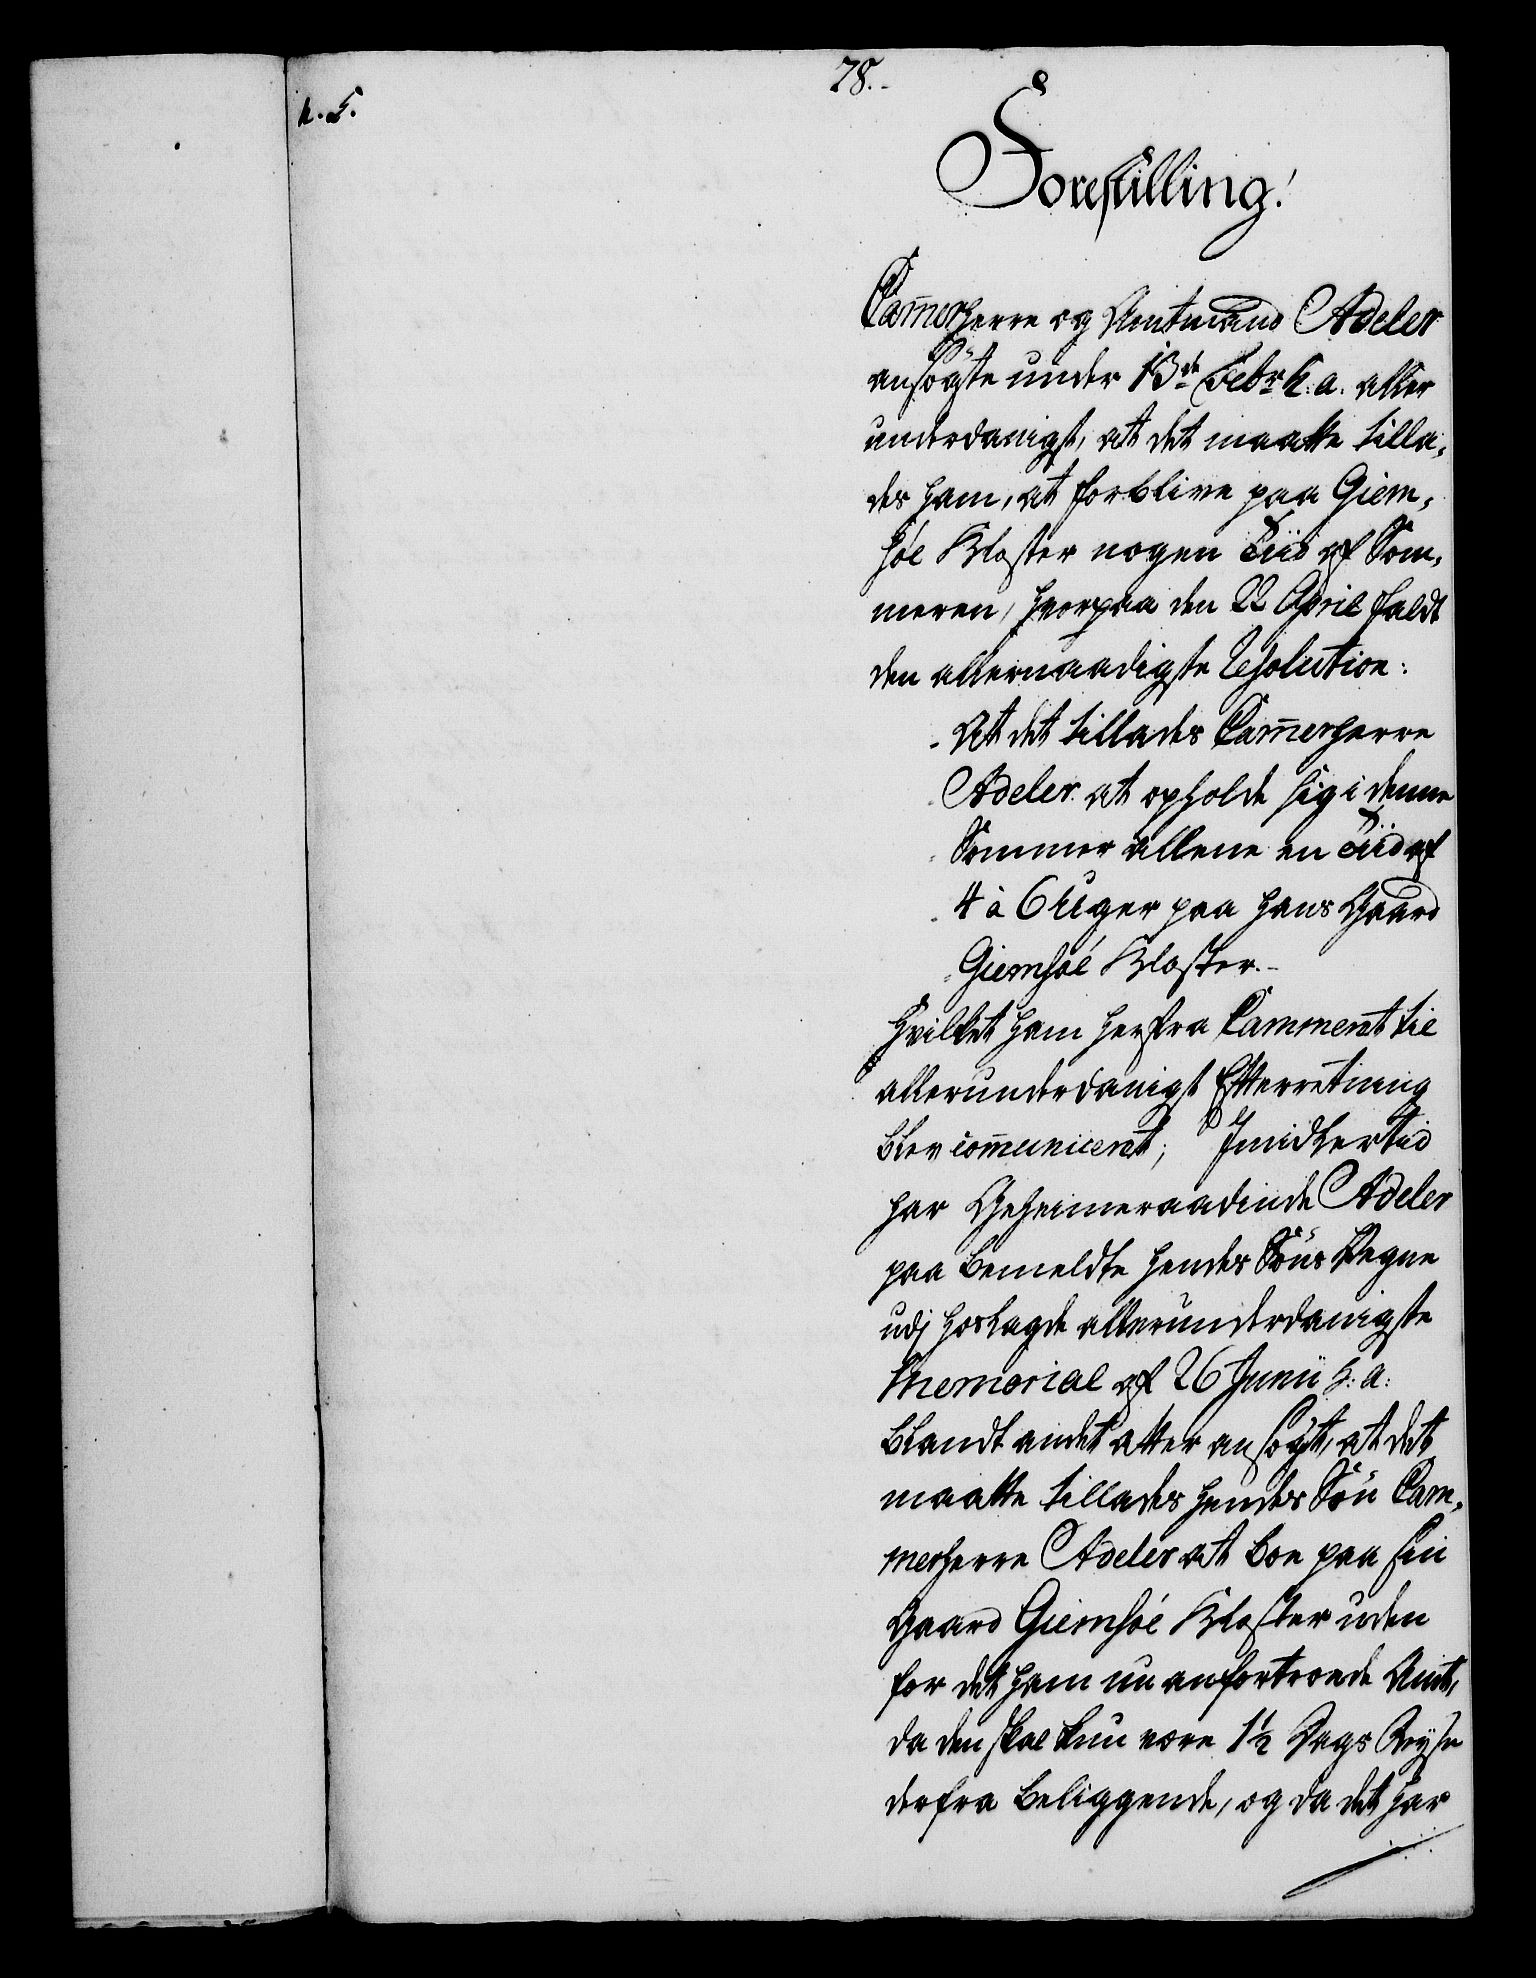 78.
Forestilling!
Cam̄erherre og Amtmand Adeler
ansøgte under 13de Febr h: a. aller
underdanigst, at det maatte tilla,
des ham, at forblive paa Giem,
søe Kloster nogen Tiid af Som,
meren, hvorpaa den 22 April faldt
den allernaadigste Resolution:
„At det tillades Cam̄erherre
„Adeler at opholde sig i denne
„Sommer allene en Tiid af
„4 à 6 Uger paa hans Gaard
„Giemsøe Kloster.-
Hvilket ham herfra Cammeret til
allerunderdanigst Efterretning
blev com̄uniceret; Imidlertid
har Geheimeraadinde Adeler
paa bemeldte hendes Søns Vegne
udj hoslagde allerunderdanigste
Memorial af 26 Junii h: a:
blandt andet atter ansøgt, at det
maatte tillades hendes Søn Cam,
merherre Adeler at boe paa sin
Gaard Giemsøe Kloster uden
for det ham nu anfortroede Amt,
da den skal kun være 1½ Dags Reyse
derfra beliggende, og da det har